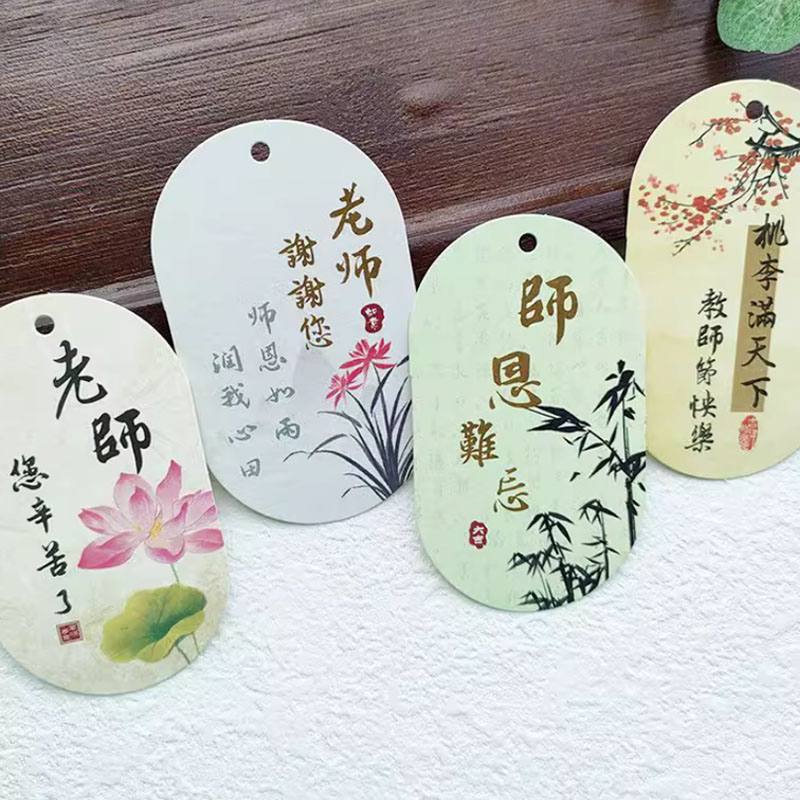 老師
您辛苦了
老师
謝謝您
师恩如雨
润我心田
師恩
難忘
桃李滿天下
教師節快樂